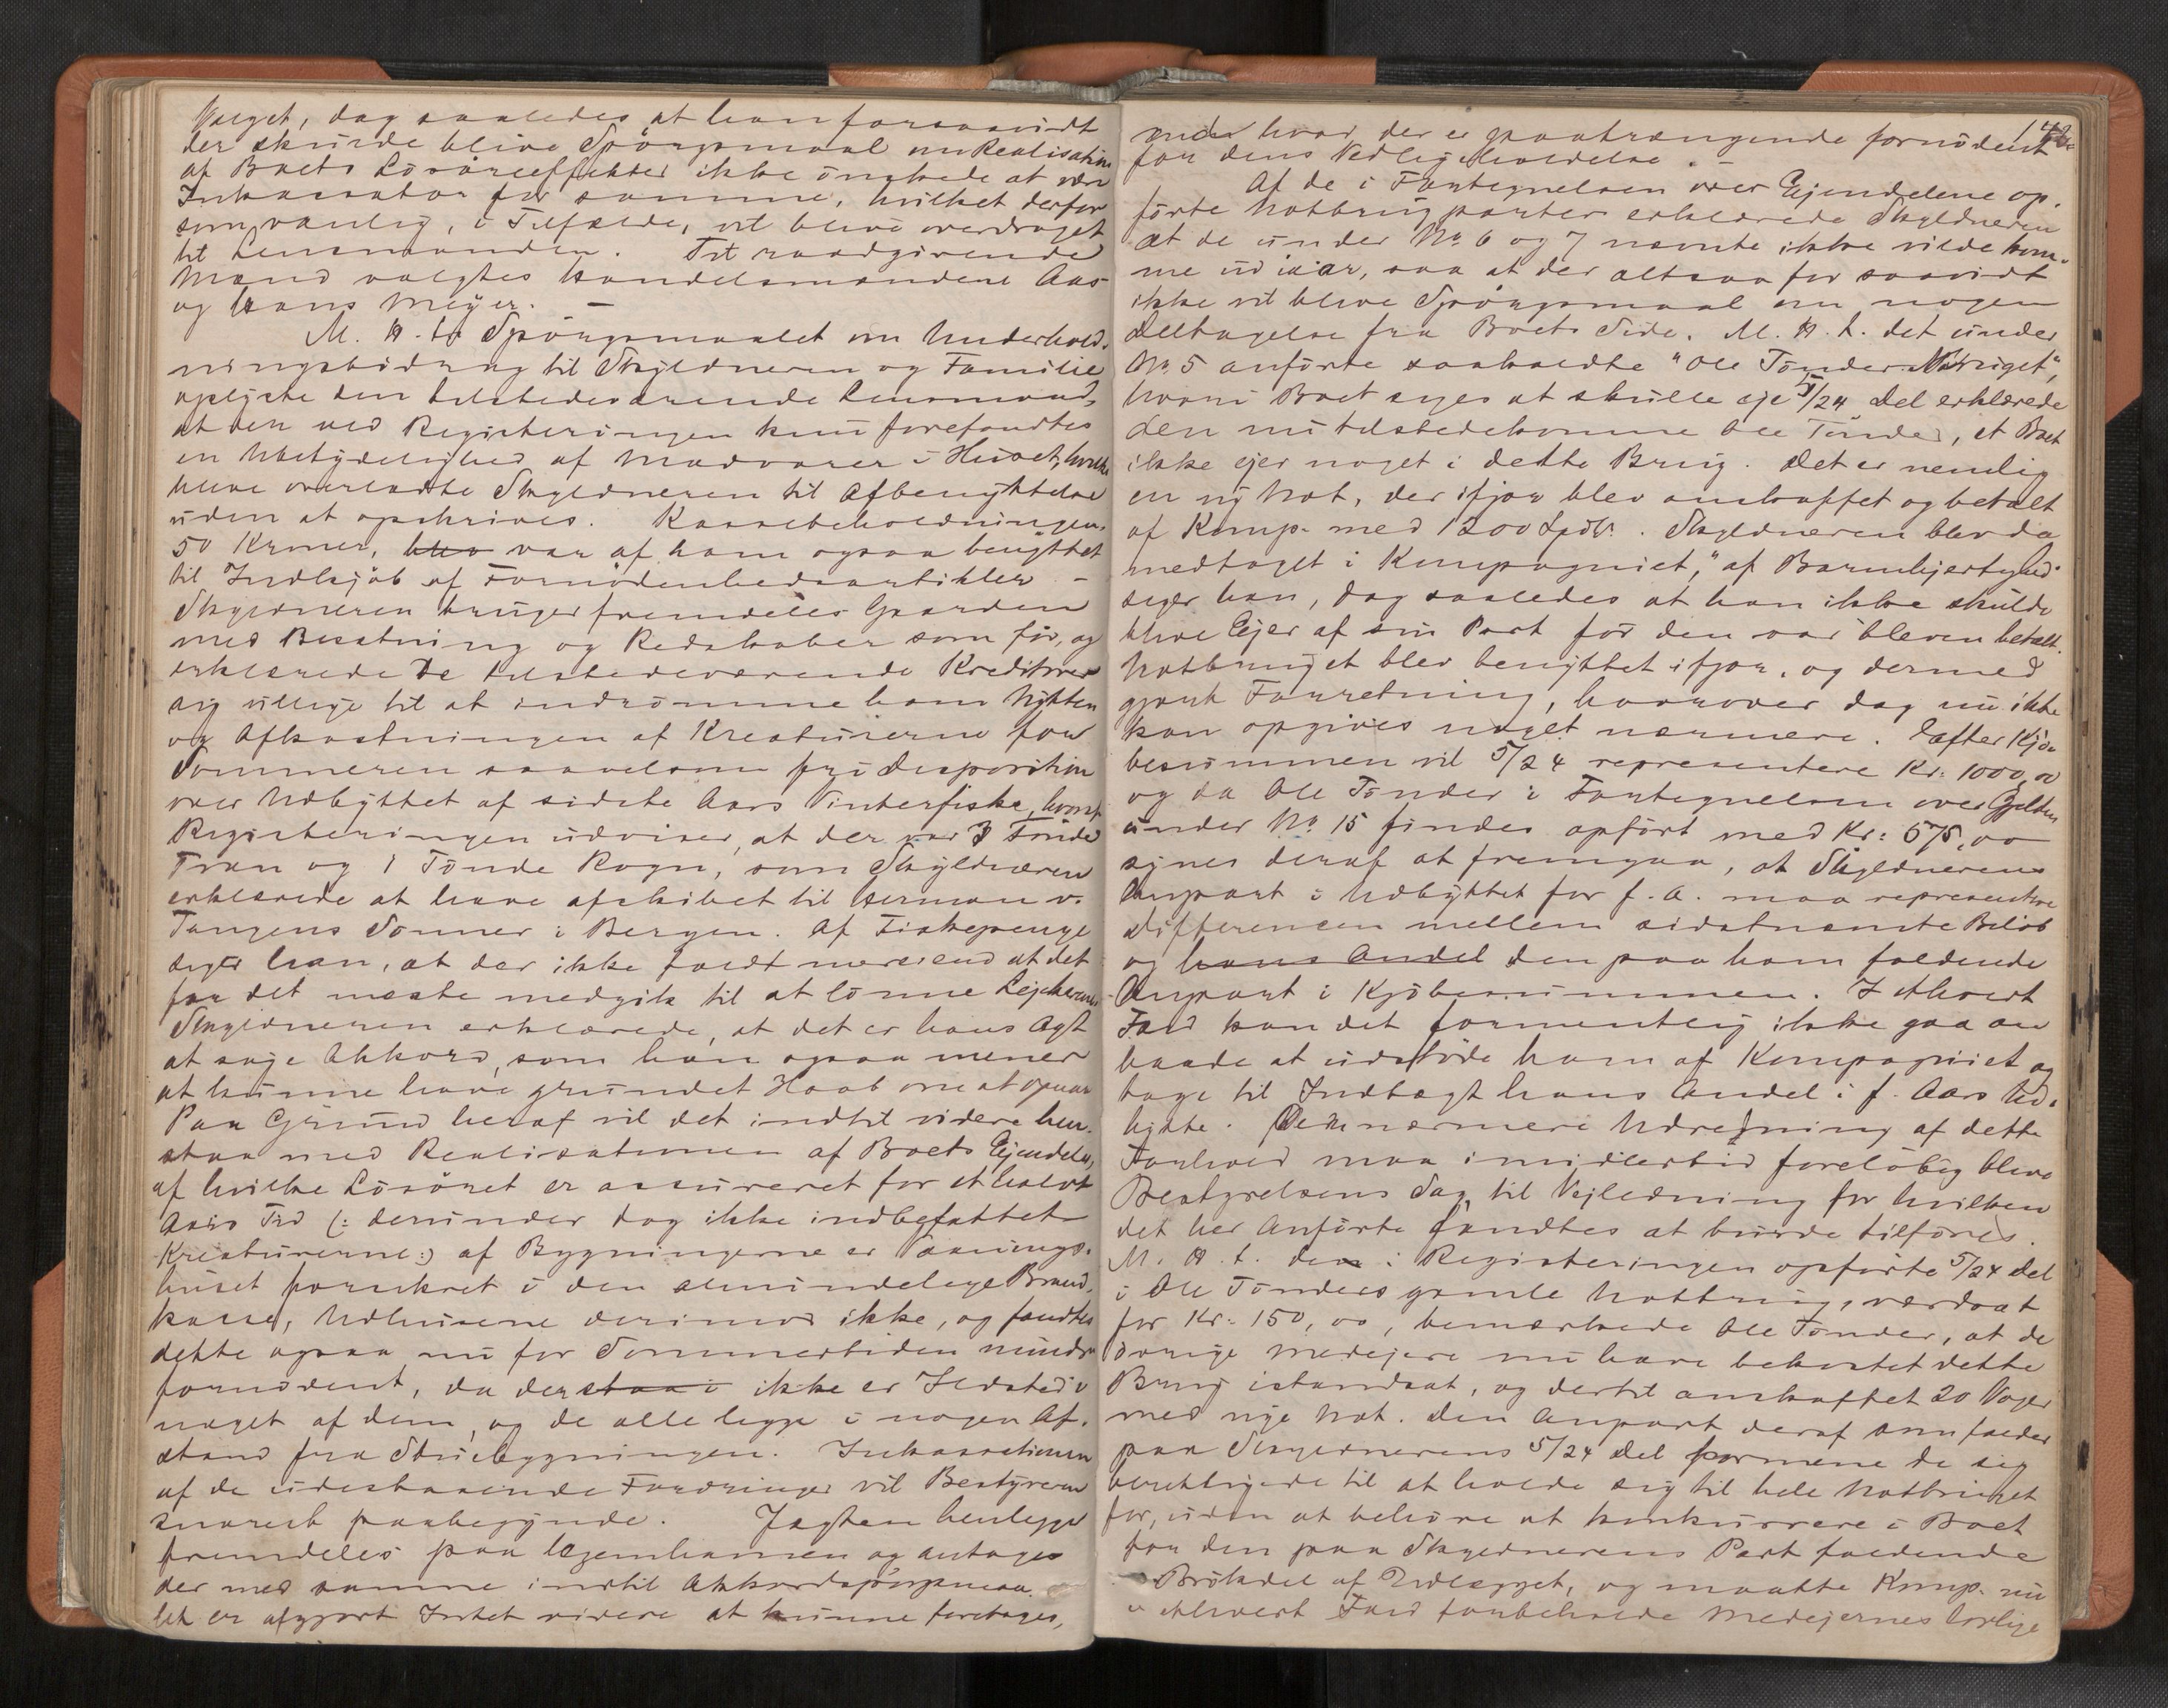 Valget, dog saaledes at han forsaavidt
der skulde blive Spörgsmaal om Realisation
af Boets Lösöreeffekter ikke önskede at være
Inkassator for samme, hvilket derfor
som vanlig, i Tilfælde, vil blive overdraget
til Lensmanden. Til raadgivende
Mænd valgtes Handelsmændene Aas
og Hans Meyer. —
M. H. t. Spörgsmaalet om Underhold-
ningsbidrag til Skyldneren og Familie
oplyste den tilstedeværende Lensmand,
at der ved Registeringen kun forefandtes
en Ubetydelighed af Madvarer i Huset, hvilke
bleve overladte Skyldneren til Afbenyttelse
uden at opskrives. Kassebeholdningen,
50 Kroner, blev var af ham ogsaa benyttet
til Indkjöb af Fornödenhedsartikler. —
Skyldneren bruger fremdeles Gaarden
med Besætning og Redskaber som för, og
erklærede de tilstedeværende Kreditorer
sig villige til at indrömme ham Nytten
og Afkastningen af Kreaturerne for
Sommeren saavelsom fri Disposition
over Udbyttet af sidste Aars Vinterfiske, hvoraf
Registeringen udviser, at der var 3 Tönder
Tran og 1 Tönde Rogn, som Skyldneren
erklærede at have afskibet til Herman v.
Tangens Sönner i Bergen. Af Fiskepenge
siger han, at der ikke faldt mere end at det
for det meste medgik til at lönne Lejekarene.
Skyldneren erklærede, at det er hans Agt
at söge Akkord, som han ogsaa mener
at kunne have grundet Haab om at opnaa
Paa Grund heraf vil det indtil videre hen-
staa med Realisationen af Boets Ejendele,
af hvilke Lösöret er assureret for et halvt
Aars Tid (: derunder dog ikke indbefattet
Kreaturerne:) af Bygningerne er Vaanings-
huset forsikret i den almindelige Brand-
kasse, Udhusene derimod ikke, og fandtes
dette ogsaa nu for Sommertiden mindre
fornödent, da der staa i ikke er Ildsted i
noget af dem, og de alle ligge i nogen Af-
stand fra Stuebygningen. Inkassationen
af de udestaaende Fordringer vil Bestyreren
snarest paabegynde. Jagten henligger
fremdeles paa Hjemhavnen og antages
der med samme indtil Akkordspörgsmaa-
let er afgjort Intet videre at kunne foretages,
142.
end hvad der er paatrængende fornödent
for dens Vedligeholdelse. —
Af de i Fortegnelsen over Ejendelene op-
förte Notbrugparter erklærede Skyldneren
at de under No 6 og 7 nævnte ikke vilde kom-
me ud iaar, saa at der altsaa for saavidt
ikke vil blive Spörgsmaal om nogen
Deltagelse fra Boets Side. M. H. t. det under
No 5 anförte saakaldte "Ole Tönder Notbruget",
hvori Boet siges at skulle eje 5/24 Del erklærede
den nu tilstedekomne Ole Tönder, at Boet
ikke ejer noget i dette Brug. Det er nemlig
en ny Not, der ifjor blev anskaffet og betalt
af Komp. med 1200 Spdlr. Skyldneren blev da
medtaget i Kompagniet, "af Barmhjertighed"
siger han, dog saaledes at han ikke skulde
blive Ejer af sin Part för den var bleven betalt.
Notbruget blev benyttet ifjor, og dermed
gjort Forretning, hvorover dog nu ikke
kan opgives noget nærmere. Efter Kjö-
besummen vil 5/24 representere Kr: 1000,00
og da Ole Tönder i Fortegnelsen over Gjelden
under No 15 findes opfört med Kr: 575,00
synes deraf at fremgaa, at Skyldnerens
Anpart i Udbyttet for f. A. maa representere
Differencen mellem sidstnævnte Belöb
og hans Andel den paa ham faldende
Anpart i Kjöbesummen. I ethvert
Fald kan det formentlig ikke gaa an
baade at udstöde ham af Kompagniet og
tage til Indtægt hans Andel i f. Aars Ud-
bytte. Den nærmere Udredning af dette
Forhold maa imidlertid foreløbig blive
Bestyrelsens Sag, til Vejledning for hvilken
det her Anförte fandtes at burde tilföres.
M. H. t. den i Registeringen opförte 5/24 Del
i Ole Tönders gamle Notbrug, værdsat
for Kr: 150,00, bemærkede Ole Tönder, at de
övrige Medejere nu have bekostet dette
Brug istandsat, og dertil anskaffet 20 Voger
med nye Not. Den Anpart deraf som falder
paa Skyldnerens 5/24 Del formene de sig
berettigede til at holde sig til hele Notbruget
for, uden at behöve at konkurrere i Boet
for den paa Skyldnerens Part faldende
Brökdel af Udlægget, og maatte Komp. nu
i ethvert Fald forbeholde Medejernes lovlige